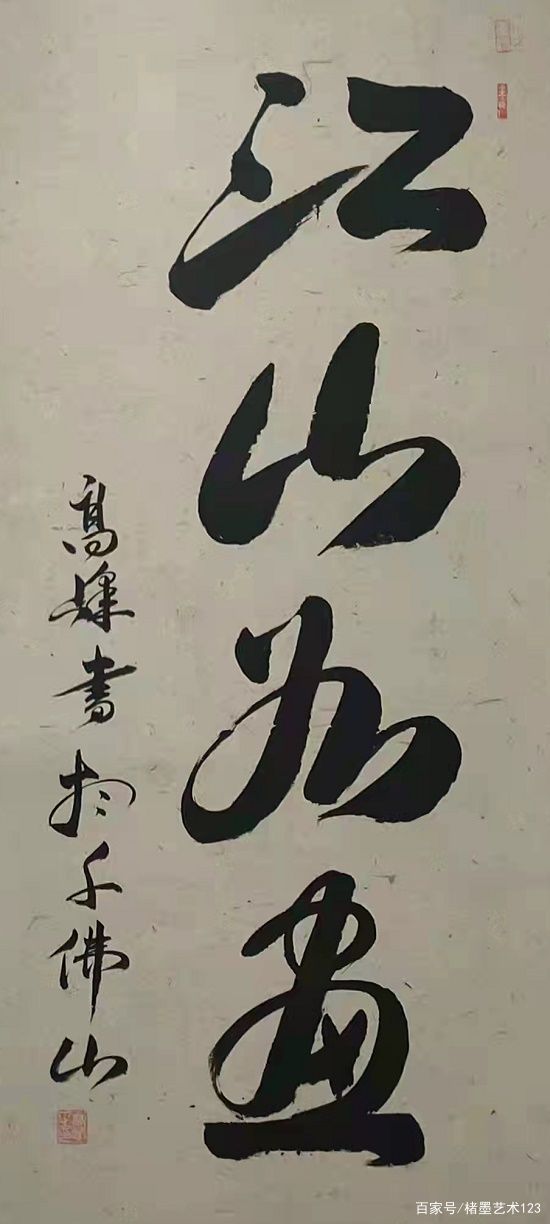 江山如画
高嵘书於千佛山
百家号/楮墨艺术123